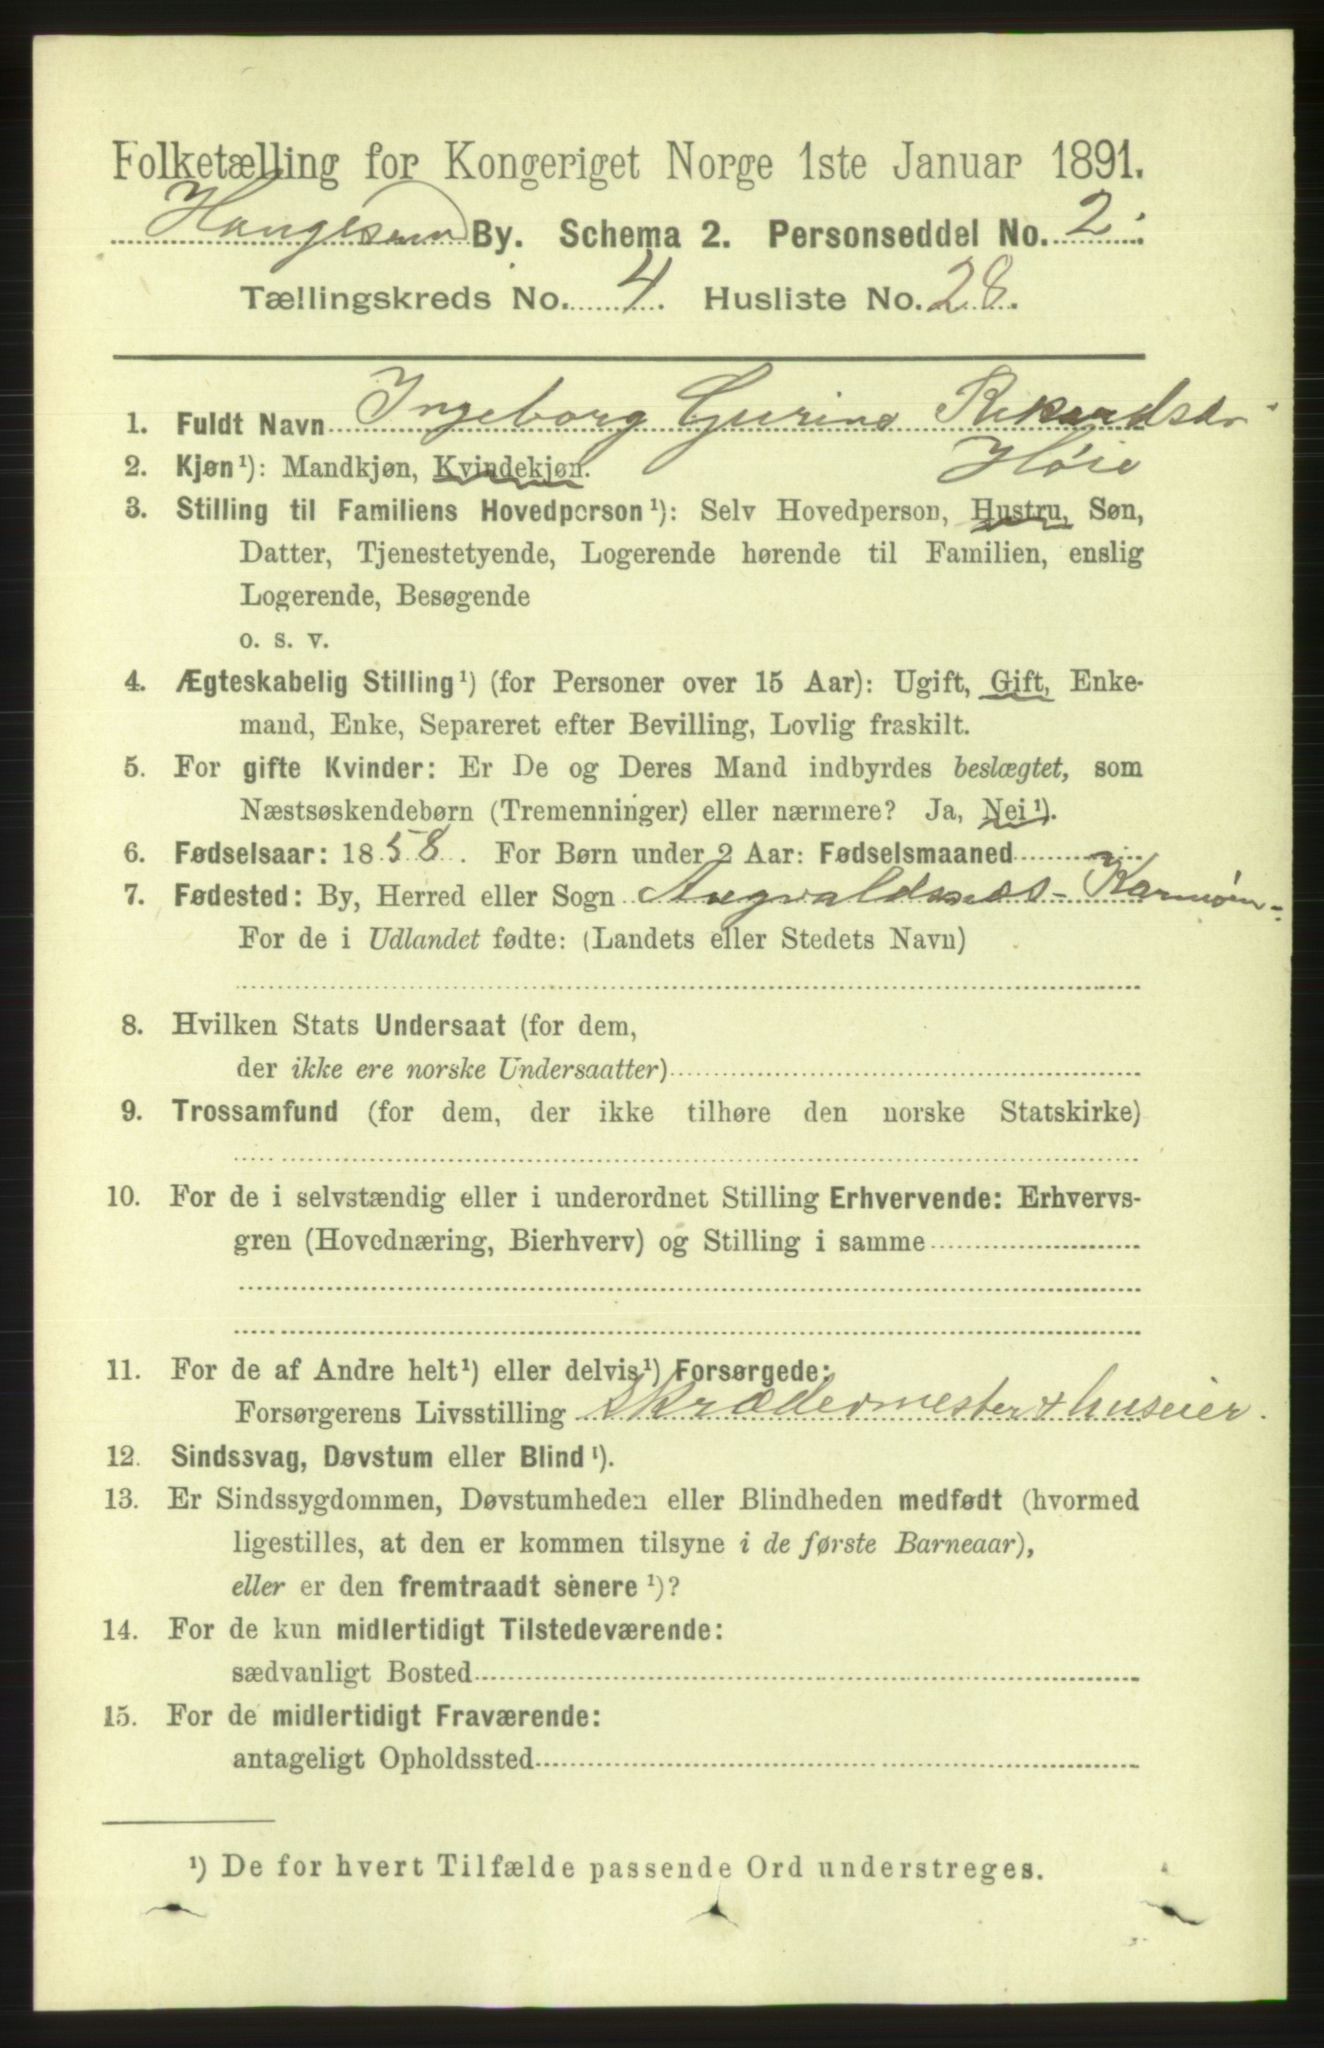 Folketælling for Kongeriget Norge 1ste Januar 1891.
Haugesund By. Schema 2. Personseddel No. 2.
Tællingskreds No. 4. Husliste No. 28.
1. Fuldt Navn Ingeborg Gurine
Høie
2. Kjøn¹): Mandkjøn, Kvindekjøn.
3. Stilling til Familiens Hovedperson¹): Selv Hovedperson, Hustru, Søn,
Datter, Tjenestetyende, Logerende hørende til Familien, enslig
Logerende, Besøgende
o. s. v.
4. Ægteskabelig Stilling¹) (for Personer over 15 Aar): Ugift, Gift, Enke-
mand, Enke, Separeret efter Bevilling, Lovlig fraskilt.
5. For gifte Kvinder: Er De og Deres Mand indbyrdes beslægtet, som
Næstsøskendebørn (Tremenninger) eller nærmere? Ja, Nei¹).
6. Fødselsaar: 1858. For Børn under 2 Aar: Fødselsmaaned
7. Fødested: By, Herred eller Sogn Augvaldsnæs - Karmøen -
For de i Udlandet fødte: (Landets eller Stedets Navn)
8. Hvilken Stats Undersaat (for dem,
der ikke ere norske Undersaatter)
9. Trossamfund (for dem, der ikke tilhøre den norske Statskirke)
10. For de i selvstændig eller i underordnet Stilling Erhvervende: Erhvervs-
gren (Hovednæring, Bierhverv) og Stilling i samme
11. For de af Andre helt¹) eller delvis¹) Forsørgede:
Forsørgerens Livsstilling Skrædermester & huseier.
12. Sindssvag, Døvstum eller Blind¹).
13. Er Sindssygdommen, Døvstumheden eller Blindheden medfødt (hvormed
ligestilles, at den er kommen tilsyne i de første Barneaar),
eller er den fremtraadt senere¹)?
14. For de kun midlertidigt Tilstedeværende:
sædvanligt Bosted
15. For de midlertidigt Fraværende:
antageligt Opholdssted
¹) De for hvert Tilfælde passende Ord understreges.